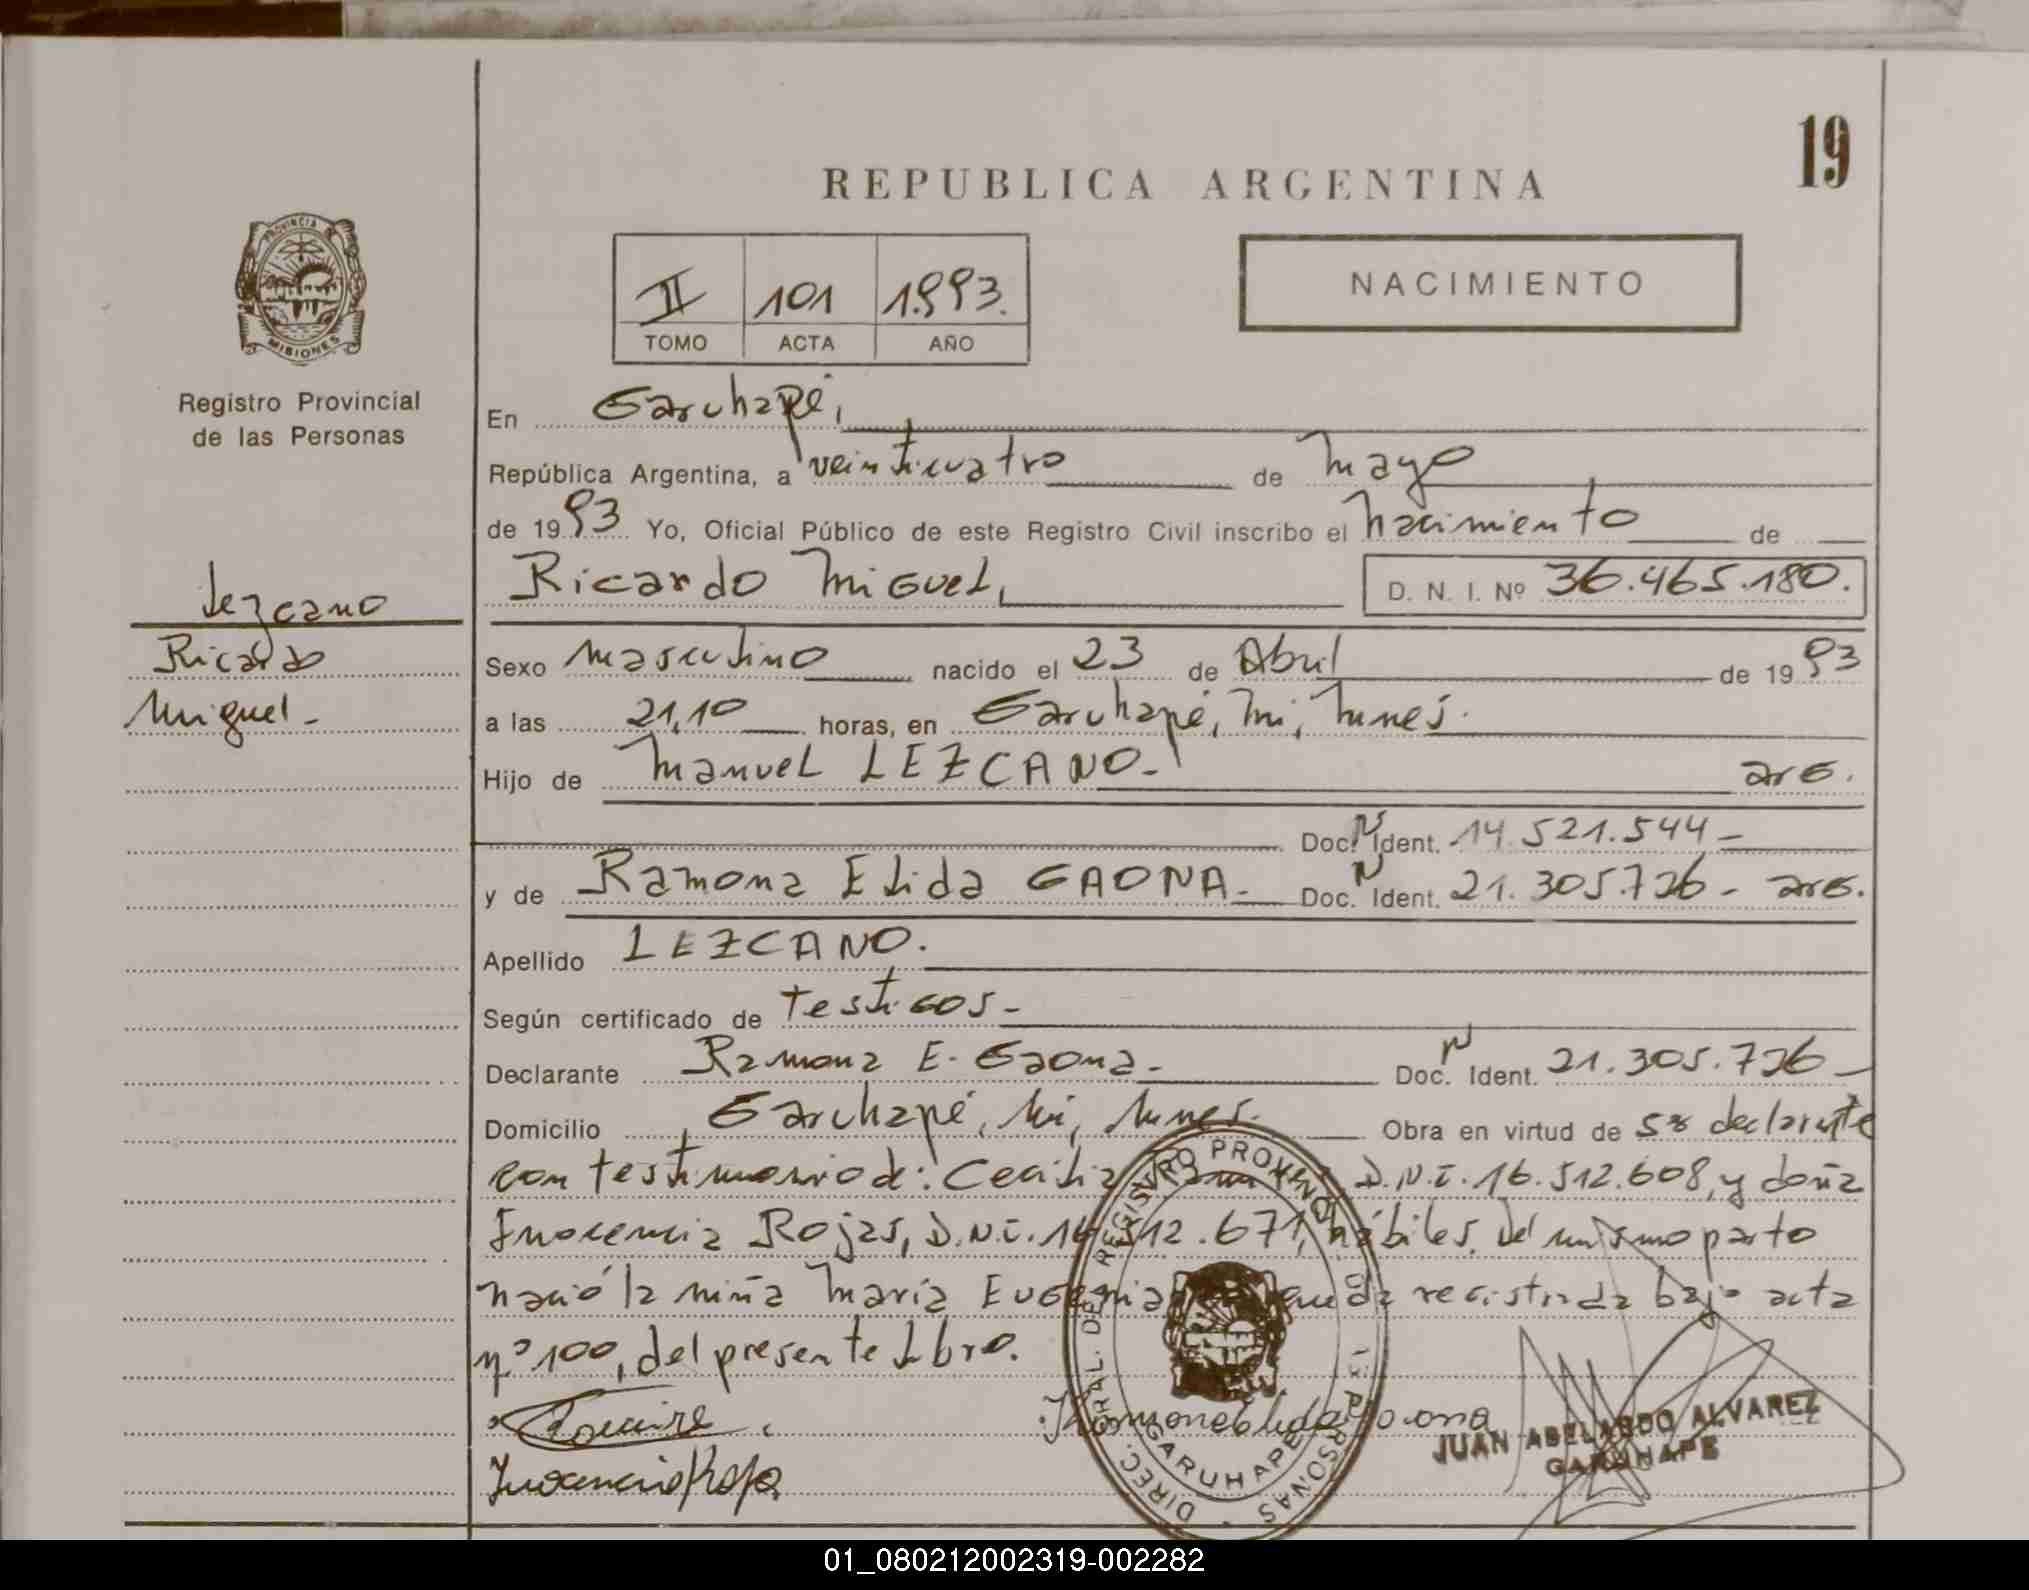 19
REPUBLICA ARGENTINA
PROVINCIA DE
MISIONES
Registro Provincial
de las Personas
II 101 1.993.
TOMO ACTA AÑO
NACIMIENTO
En Garuhapé,
República Argentina, a veinticuatro de Mayo
de 1993 Yo, Oficial Público de este Registro Civil inscribo el Nacimiento de
Ricardo Miguel, D. N. I. Nº 36.465.180.
Lezcano
Ricardo
Miguel -
Sexo masculino nacido el 23 de Abril de 1993
a las 21,10 horas, en Garuhapé, Mi, Mnes.
Hijo de Manuel LEZCANO- arg.
Doc. N Ident. 14.521.544-
y de Ramona Elida GAONA- Doc. N Ident. 21.305.726- arg.
Apellido LEZCANO.
Según certificado de testigos-
Declarante Ramona E. Gaona- Doc. N Ident. 21.305.726-
Domicilio Garuhapé, Mi, Mnes. Obra en virtud de ser declarante
con testimonio de: Cecilia D.N.I. 16.512.608, y doña
Inocencia Rojas, D.N.I. 14.512.671, hábiles. Del mismo parto
nació la niña María Eugenia queda registrada bajo acta
nº 100, del presente Libro.
Ramona Elida Gaona
JUAN ABELARDO ALVAREZ
GARUHAPE
Inocencia Roja
DIREC. GRAL. DEL REGISTRO PROVINCIAL DE LAS PERSONAS
GARUHAPE
01_080212002319-002282